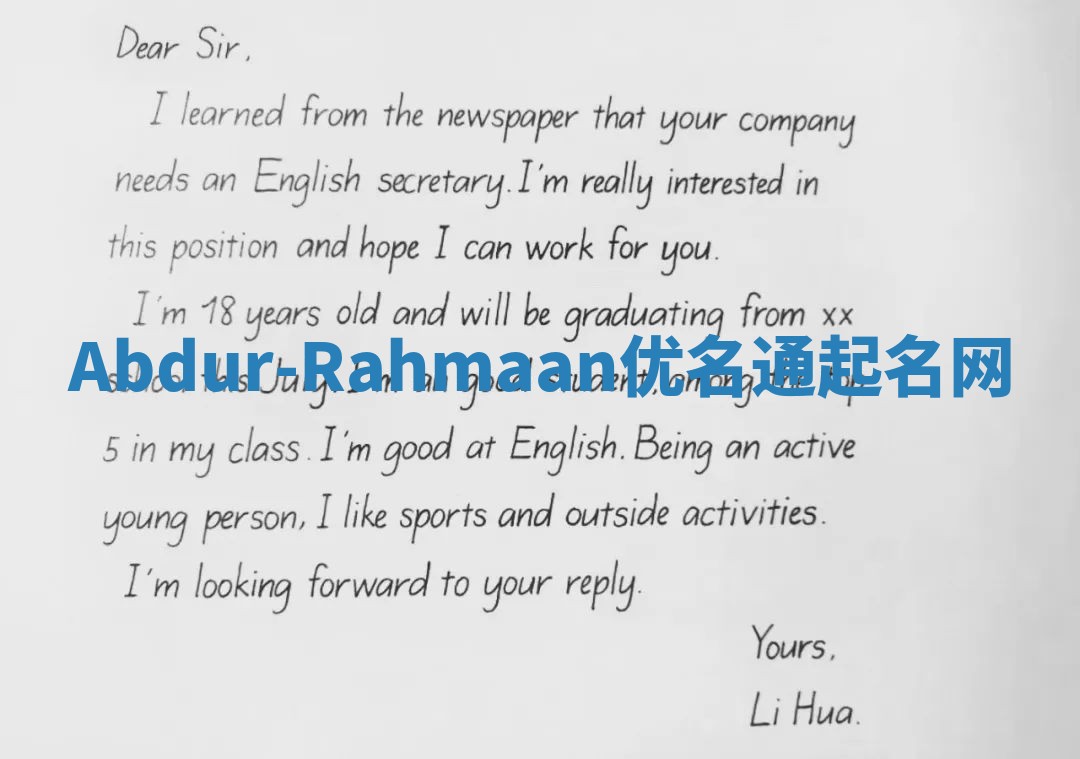 Dear Sir,
I learned from the newspaper that your company
needs an English secretary. I'm really interested in
this position and hope I can work for you.
I'm 18 years old and will be graduating from xx
Abdur-Rahmaan优名通起名网
school this July. I'm a good student, among the top
5 in my class. I'm good at English. Being an active
young person, I like sports and outside activities.
I'm looking forward to your reply.
Yours,
Li Hua.